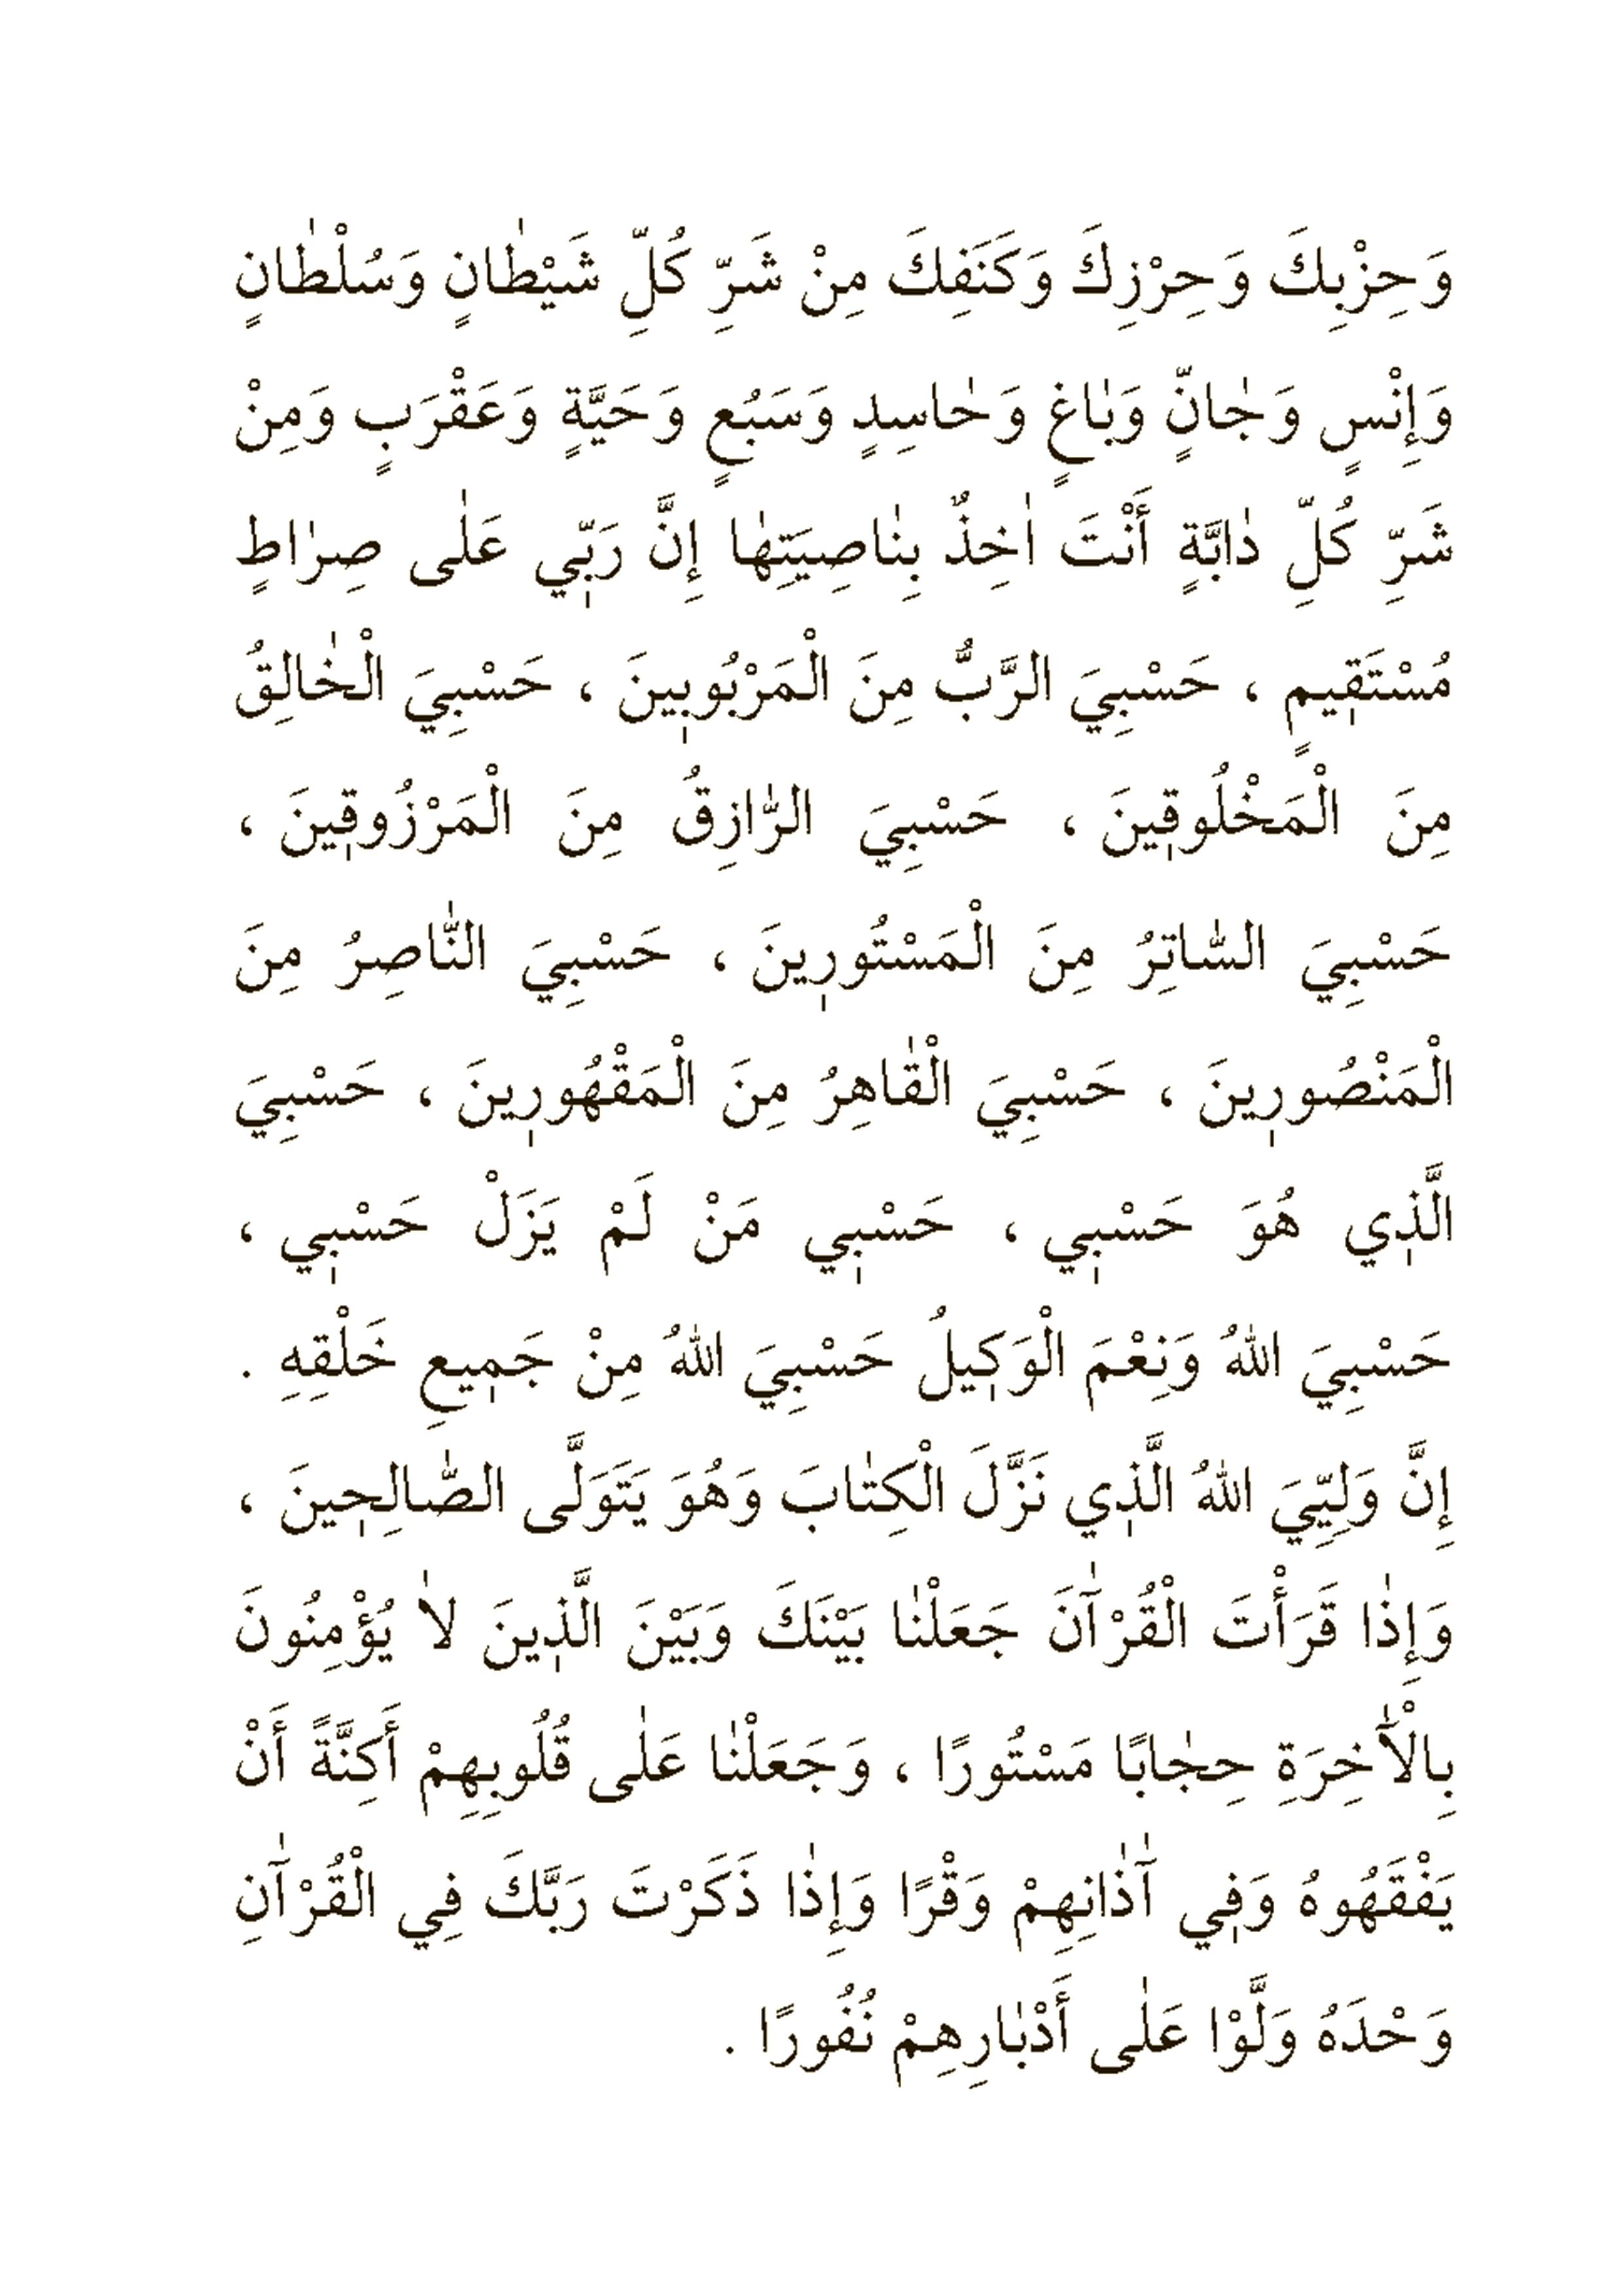 وَحِزْبِكَ وَحِرْزِكَ وَكَنَفِكَ مِنْ شَرِّ كُلِّ شَيْطٰانٍ وَسُلْطٰانٍ
وَإِنْسٍ وَجٰانٍّ وَبٰاغٍ وَحٰاسِدٍ وَسَبُعٍ وَحَيَّةٍ وَعَقْرَبٍ وَمِنْ
شَرِّ كُلِّ دٰابَّةٍ أَنْتَ اٰخِذٌ بِنٰاصِيَتِهٰا إِنَّ رَبّٖي عَلٰى صِرٰاطٍ
مُسْتَقٖيمٍ ، حَسْبِيَ الرَّبُّ مِنَ الْمَرْبُوبٖينَ ، حَسْبِيَ الْخٰالِقُ
مِنَ الْمَخْلُوقٖينَ ، حَسْبِيَ الرّٰازِقُ مِنَ الْمَرْزُوقٖينَ ،
حَسْبِيَ السّٰاتِرُ مِنَ الْمَسْتُورٖينَ ، حَسْبِيَ النّٰاصِرُ مِنَ
الْمَنْصُورٖينَ ، حَسْبِيَ الْقٰاهِرُ مِنَ الْمَقْهُورٖينَ ، حَسْبِيَ
الَّذٖي هُوَ حَسْبٖي ، حَسْبٖي مَنْ لَمْ يَزَلْ حَسْبٖي ،
حَسْبِيَ اللهُ وَنِعْمَ الْوَكٖيلُ حَسْبِيَ اللهُ مِنْ جَمٖيعِ خَلْقِهِ .
إِنَّ وَلِيِّيَ اللهُ الَّذٖي نَزَّلَ الْكِتٰابَ وَهُوَ يَتَوَلَّى الصّٰالِحٖينَ ،
وَإِذٰا قَرَأْتَ الْقُرْاٰنَ جَعَلْنٰا بَيْنَكَ وَبَيْنَ الَّذٖينَ لاٰ يُؤْمِنُونَ
بِالْاٰخِرَةِ حِجٰابًا مَسْتُورًا ، وَجَعَلْنٰا عَلٰى قُلُوبِهِمْ أَكِنَّةً أَنْ
يَفْقَهُوهُ وَفٖي اٰذٰانِهِمْ وَقْرًا وَإِذٰا ذَكَرْتَ رَبَّكَ فِي الْقُرْآنِ
وَحْدَهُ وَلَّوْا عَلٰى أَدْبٰارِهِمْ نُفُورًا .